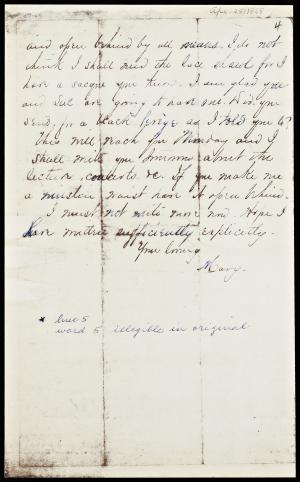 Apr. 25, 1865
4
and open behind by all means. I do not
think I shall need the lace shawl for I
have a sacque you know. I am glad you
and are going to have one. Did you
send for a black fringe as I told you to?
This will reach you Monday and I
shall write you tomorrow about the
lecture, concerts &c. If you make me
a muslin waist have it open behind.
I must not write more now. Hope I
have written sufficiently explicitly.
Your loving
Mary.
* line 5
word 5 illegible in original